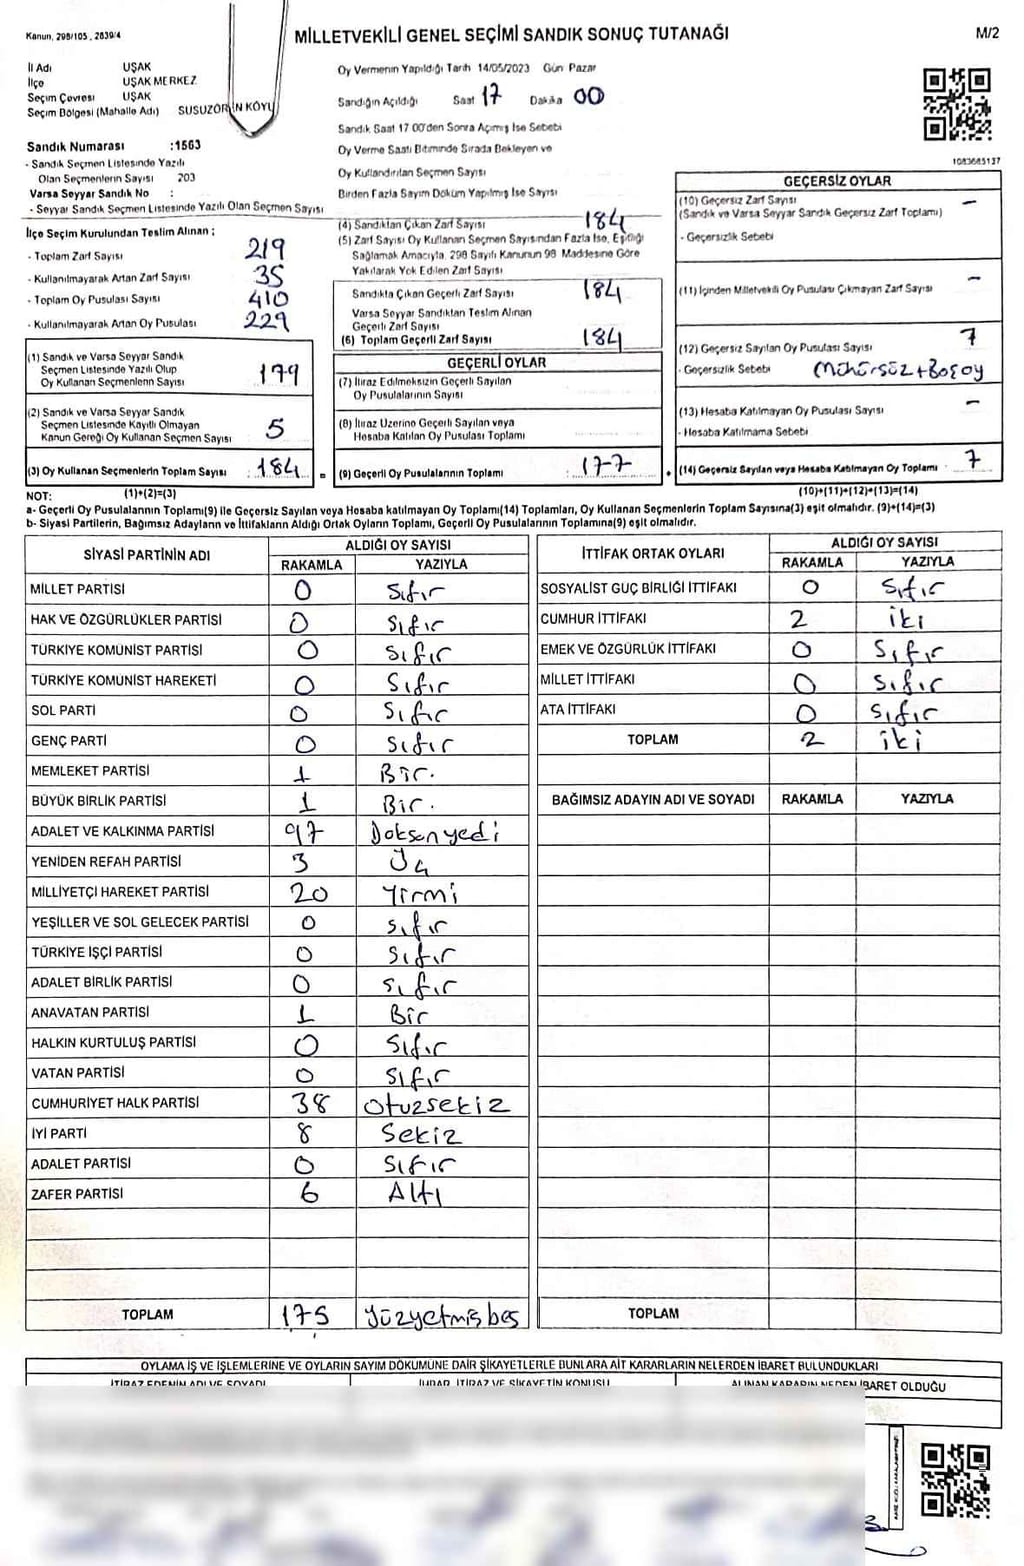 Kanun, 298/105 , 2839/4
MİLLETVEKİLİ GENEL SEÇİMİ SANDIK SONUÇ TUTANAĞI
M/2
İl Adı UŞAK
İlçe UŞAK MERKEZ
Seçim Çevresi UŞAK
Seçim Bölgesi (Mahalle Adı) SUSUZÖREN KÖYÜ
Sandık Numarası :1563
- Sandık Seçmen Listesinde Yazılı
Olan Seçmenlerin Sayısı 203
Varsa Seyyar Sandık No :
- Seyyar Sandık Seçmen Listesinde Yazılı Olan Seçmen Sayısı
Oy Vermenin Yapıldığı Tarih 14/05/2023 Gün Pazar
Sandığın Açıldığı Saat 17 Dakika 00
Sandık Saat 17 00'den Sonra Açımış İse Sebebi
Oy Verme Saati Bitiminde Sırada Bekleyen ve
Oy Kullandırılan Seçmen Sayısı
Birden Fazla Sayım Döküm Yapılmış İse Sayısı
1083685137
İlçe Seçim Kurulundan Teslim Alınan ;
- Toplam Zarf Sayısı 219
- Kullanılmayarak Artan Zarf Sayısı 35
- Toplam Oy Pusulası Sayısı 410
- Kullanılmayarak Artan Oy Pusulası 229
(1) Sandık ve Varsa Seyyar Sandık
Seçmen Listesinde Yazılı Olup
Oy Kullanan Seçmenlerin Sayısı 179
(2) Sandık ve Varsa Seyyar Sandık
Seçmen Listesinde Kayıtlı Olmayan
Kanun Gereği Oy Kullanan Seçmen Sayısı 5
(3) Oy Kullanan Seçmenlerin Toplam Sayısı :184
(4) Sandıktan Çıkan Zarf Sayısı 184
(5) Zarf Sayısı Oy Kullanan Seçmen Sayısından Fazla İse, Eşitliği
Sağlamak Amacıyla, 298 Sayılı Kanunun 98 Maddesine Göre
Yakılarak Yok Edilen Zarf Sayısı
Sandıkta Çıkan Geçerli Zarf Sayısı 184
Varsa Seyyar Sandıktan Teslim Alınan
Geçerli Zarf Sayısı
(6) Toplam Geçerli Zarf Sayısı 184
GEÇERLİ OYLAR
(7) İtiraz Edilmeksizin Geçerli Sayılan
Oy Pusulalarının Sayısı
(8) İtiraz Üzerine Geçerli Sayılan veya
Hesaba Katılan Oy Pusulası Toplamı
= (9) Geçerli Oy Pusulalarının Toplamı : 177
GEÇERSİZ OYLAR
(10) Geçersiz Zarf Sayısı –
(Sandık ve Varsa Seyyar Sandık Geçersiz Zarf Toplamı)
- Geçersizlik Sebebi
(11) İçinden Milletvekili Oy Pusulası Çıkmayan Zarf Sayısı –
(12) Geçersiz Sayılan Oy Pusulası Sayısı 7
- Geçersizlik Sebebi Mühürsüz+Boş oy
(13) Hesaba Katılmayan Oy Pusulası Sayısı –
- Hesaba Katılmama Sebebi
+ (14) Geçersiz Sayılan veya Hesaba Katılmayan Oy Toplamı 7
NOT: (1)+(2)=(3) (10)+(11)+(12)+(13)=(14)
a- Geçerli Oy Pusulalarının Toplamı(9) ile Geçersiz Sayılan veya Hesaba katılmayan Oy Toplamı(14) Toplamları, Oy Kullanan Seçmenlerin Toplam Sayısına(3) eşit olmalıdır. (9)+(14)=(3)
b- Siyasi Partilerin, Bağımsız Adayların ve İttifakların Aldığı Ortak Oyların Toplamı, Geçerli Oy Pusulalarının Toplamına(9) eşit olmalıdır.
SİYASİ PARTİNİN ADI ALDIĞI OY SAYISI
RAKAMLA YAZIYLA
MİLLET PARTİSİ 0 Sıfır
HAK VE ÖZGÜRLÜKLER PARTİSİ 0 Sıfır
TÜRKİYE KOMÜNİST PARTİSİ 0 Sıfır
TÜRKİYE KOMÜNİST HAREKETİ 0 Sıfır
SOL PARTİ 0 Sıfır
GENÇ PARTİ 0 Sıfır
MEMLEKET PARTİSİ 1 Bir.
BÜYÜK BİRLİK PARTİSİ 1 Bir.
ADALET VE KALKINMA PARTİSİ 97 Doksanyedi
YENİDEN REFAH PARTİSİ 3 Üç
MİLLİYETÇİ HAREKET PARTİSİ 20 Yirmi
YEŞİLLER VE SOL GELECEK PARTİSİ 0 Sıfır
TÜRKİYE İŞÇİ PARTİSİ 0 Sıfır
ADALET BİRLİK PARTİSİ 0 Sıfır
ANAVATAN PARTİSİ 1 Bir
HALKIN KURTULUŞ PARTİSİ 0 Sıfır
VATAN PARTİSİ 0 Sıfır
CUMHURİYET HALK PARTİSİ 38 Otuzsekiz
İYİ PARTİ 8 Sekiz
ADALET PARTİSİ 0 Sıfır
ZAFER PARTİSİ 6 Altı
TOPLAM 175 Yüzyetmişbeş
İTTİFAK ORTAK OYLARI ALDIĞI OY SAYISI
RAKAMLA YAZIYLA
SOSYALİST GÜÇ BİRLİĞİ İTTİFAKI 0 Sıfır
CUMHUR İTTİFAKI 2 iki
EMEK VE ÖZGÜRLÜK İTTİFAKI 0 Sıfır
MİLLET İTTİFAKI 0 Sıfır
ATA İTTİFAKI 0 Sıfır
TOPLAM 2 iki
BAĞIMSIZ ADAYIN ADI VE SOYADI RAKAMLA YAZIYLA
TOPLAM
OYLAMA İŞ VE İŞLEMLERİNE VE OYLARIN SAYIM DÖKÜMÜNE DAİR ŞİKAYETLERLE BUNLARA AİT KARARLARIN NELERDEN İBARET BULUNDUKLARI
İTİRAZ EDENİN ADI VE SOYADI İHBAR, İTİRAZ VE ŞİKAYETİN KONUSU ALINAN KARARIN NEDEN İBARET OLDUĞU